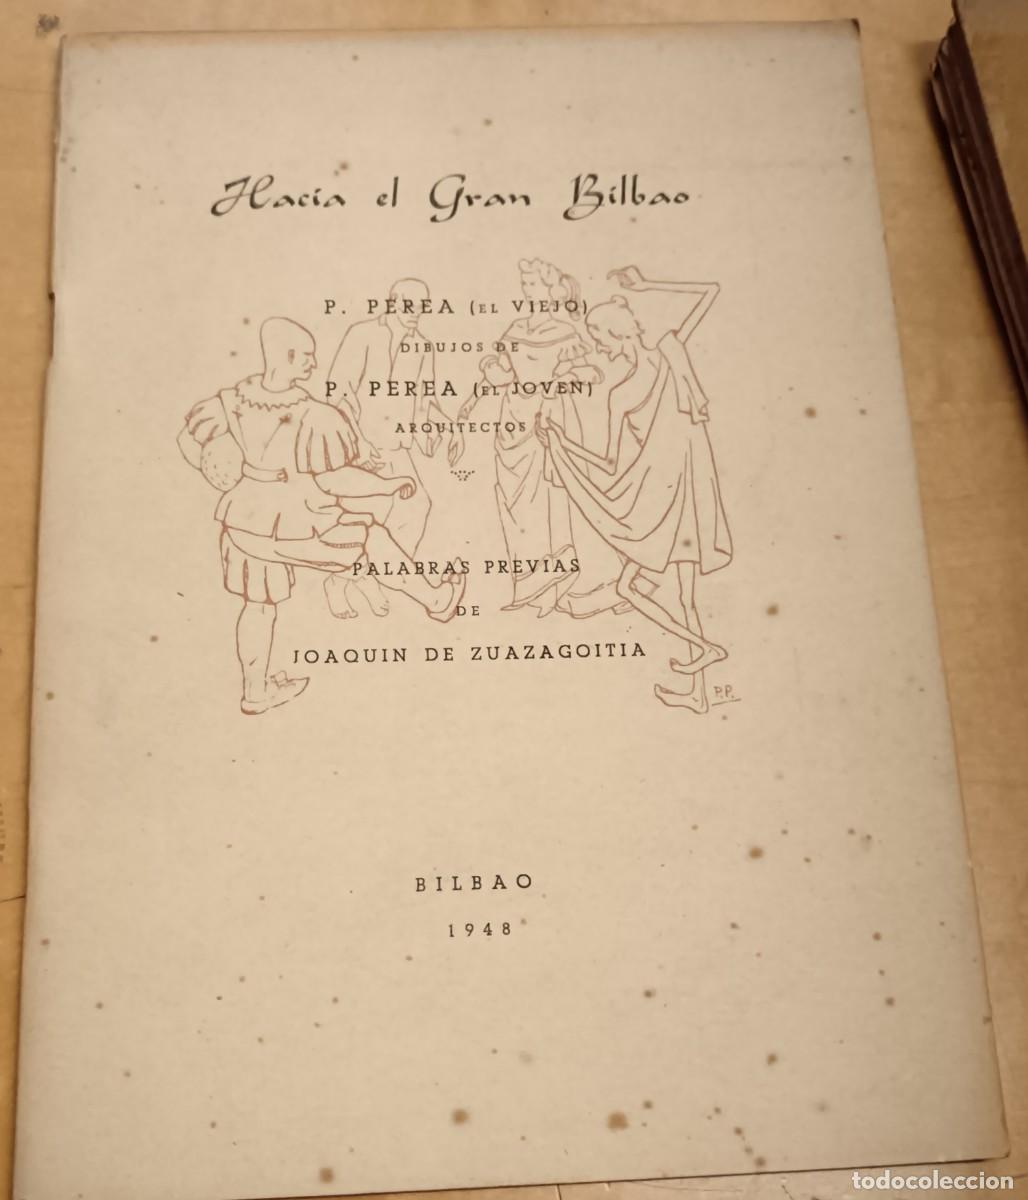 Hacia el Gran Bilbao
P. PEREA (EL VIEJO)
DIBUJOS DE
P. PEREA (EL JOVEN)
ARQUITECTOS
PALABRAS PREVIAS
DE
JOAQUIN DE ZUAZAGOITIA
P.P.
BILBAO
1948
todocoleccion